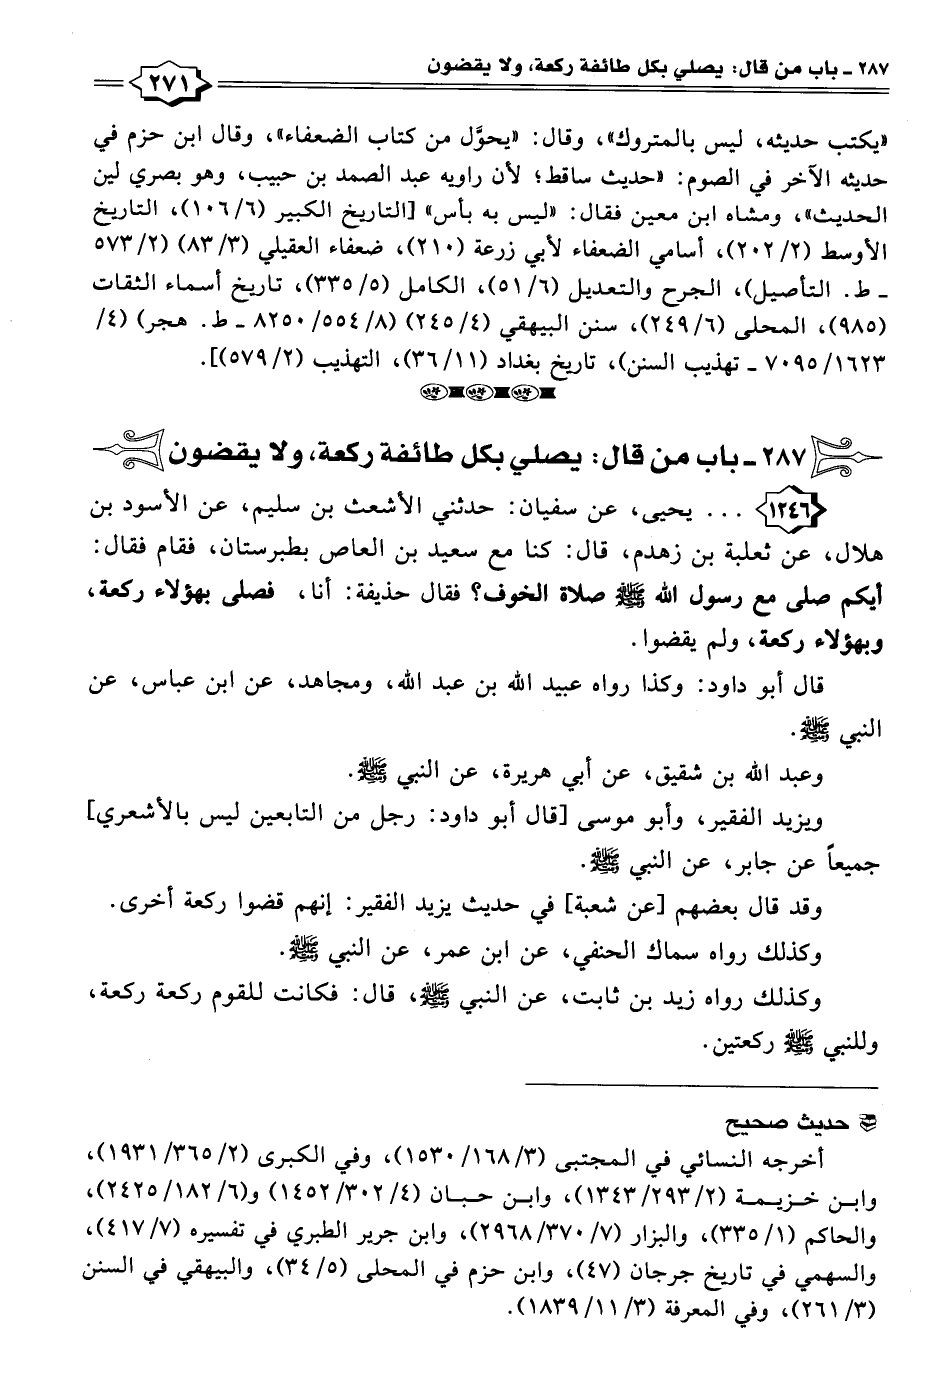 ٢٨٧ ـ باب من قال: يصلي بكل طائفة ركعة، ولا يقضون
٢٧١
«يكتب حديثه، ليس بالمتروك»، وقال: «يحوَّل من كتاب الضعفاء»، وقال ابن حزم في
حديثه الآخر في الصوم: «حديث ساقط؛ لأن راويه عبد الصمد بن حبيب، وهو بصري لين
الحديث»، ومشاه ابن معين فقال: «ليس به بأس» [التاريخ الكبير (١٠٦/٦)، التاريخ
الأوسط (٢٠٢/٢)، أسامي الضعفاء لأبي زرعة (٢١٠)، ضعفاء العقيلي (٨٣/٣) (٥٧٣/٢
ـ ط. التأصيل)، الجرح والتعديل (٥١/٦)، الكامل (٣٣٥/٥)، تاريخ أسماء الثقات
(٩٨٥)، المحلى (٢٤٩/٦)، سنن البيهقي (٢٤٥/٤) (٨٢٥٠/٥٥٤/٨ ـ ط. هجر) (٤/
٧٠٩٥/١٦٢٣ ـ تهذيب السنن)، تاريخ بغداد (٣٦/١١)، التهذيب (٥٧٩/٢)].
٢٨٧ ـ باب من قال: يصلي بكل طائفة ركعة، ولا يقضون
١٢٤٦ ... يحيى، عن سفيان: حدثني الأشعث بن سليم، عن الأسود بن
هلال، عن ثعلبة بن زهدم، قال: كنا مع سعيد بن العاص بطبرستان، فقام فقال:
أيكم صلى مع رسول الله ﷺ صلاة الخوف؟ فقال حذيفة: أنا، فصلى بهؤلاء ركعة،
وبهؤلاء ركعة، ولم يقضوا.
قال أبو داود: وكذا رواه عبيد الله بن عبد الله، ومجاهد، عن ابن عباس، عن
النبي ﷺ.
وعبد الله بن شقيق، عن أبي هريرة، عن النبي ﷺ.
ويزيد الفقير، وأبو موسى [قال أبو داود: رجل من التابعين ليس بالأشعري]
جميعاً عن جابر، عن النبي ﷺ.
وقد قال بعضهم [عن شعبة] في حديث يزيد الفقير: إنهم قضوا ركعة أخرى.
وكذلك رواه سماك الحنفي، عن ابن عمر، عن النبي ﷺ.
وكذلك رواه زيد بن ثابت، عن النبي ﷺ، قال: فكانت للقوم ركعة ركعة،
وللنبي ﷺ ركعتين.
حديث صحيح
أخرجه النسائي في المجتبى (١٥٣٠/١٦٨/٣)، وفي الكبرى (١٩٣١/٣٦٥/٢)،
وابن خزيمة (١٣٤٣/٢٩٣/٢)، وابن حبان (١٤٥٢/٣٠٢/٤) و(٢٤٢٥/١٨٢/٦)،
والحاكم (٣٣٥/١)، والبزار (٢٩٦٨/٣٧٠/٧)، وابن جرير الطبري في تفسيره (٤١٧/٧)،
والسهمي في تاريخ جرجان (٤٧)، وابن حزم في المحلى (٣٤/٥)، والبيهقي في السنن
(٢٦١/٣)، وفي المعرفة (١٨٣٩/١١/٣).